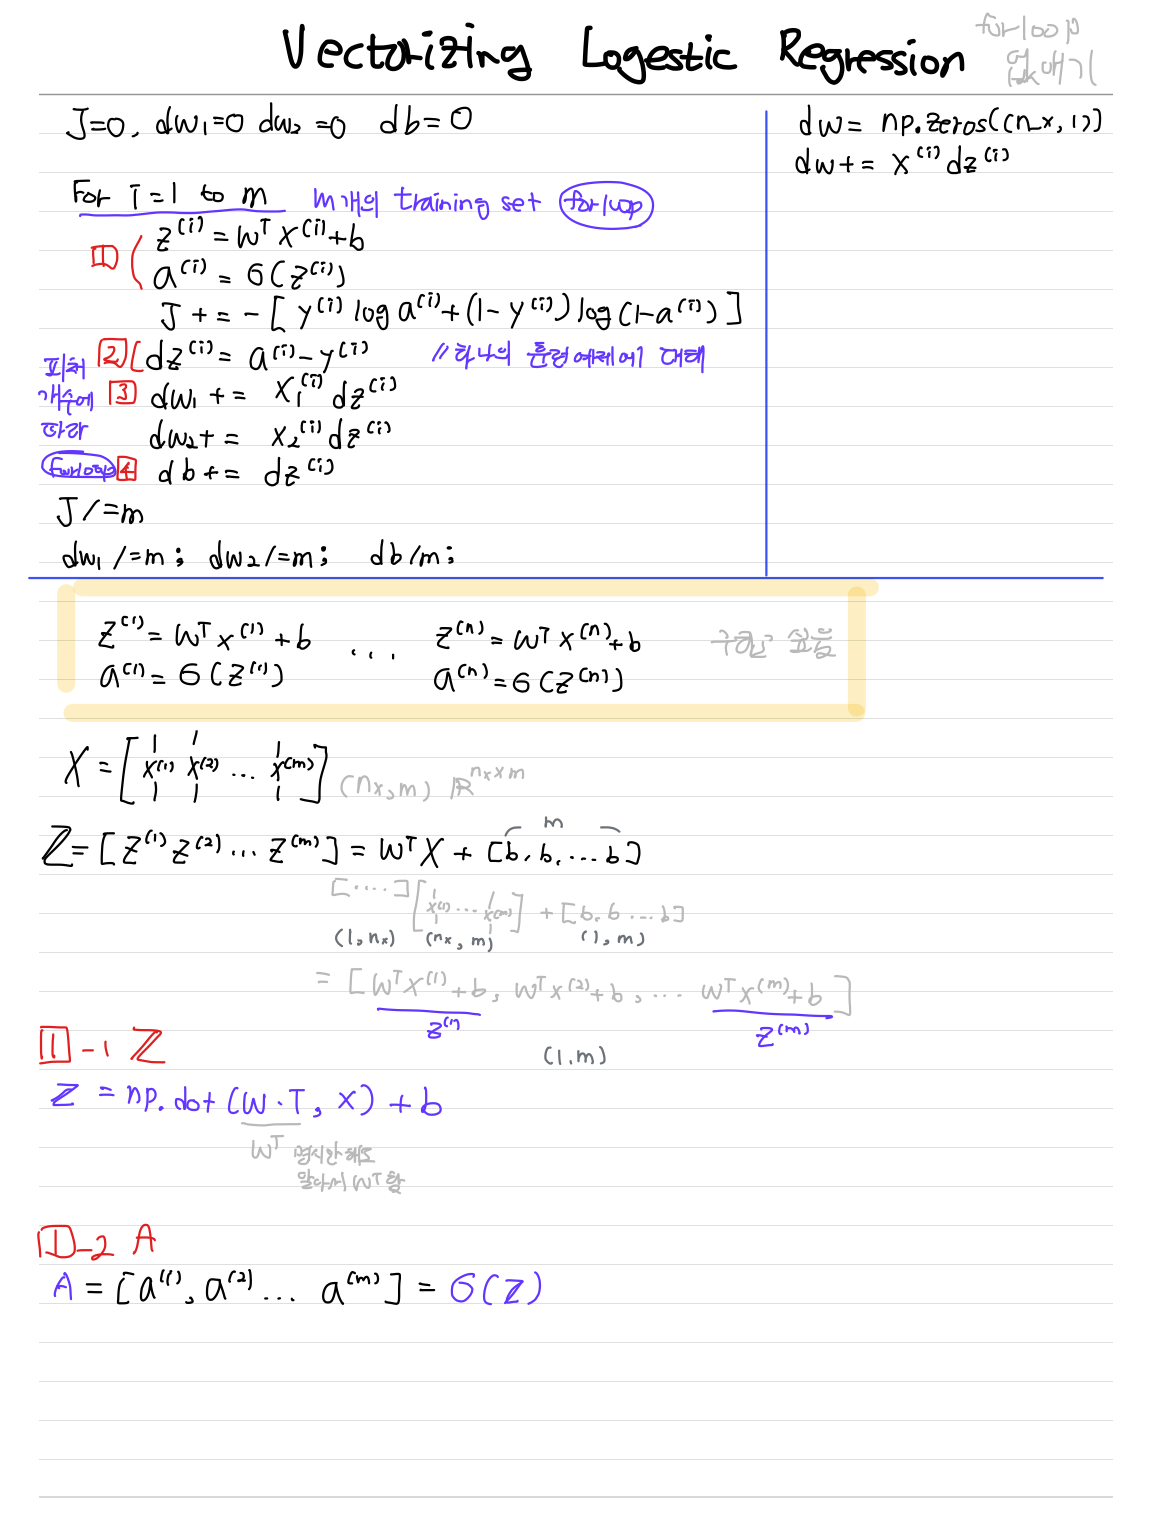 Vectorizing Logestic Regression
for loop
없애기
J=0, dw₁=0 dw₂=0 db=0
For i=1 to m
m개의 training set for loop
1
z⁽ⁱ⁾ = wᵀ x⁽ⁱ⁾ + b
a⁽ⁱ⁾ = σ(z⁽ⁱ⁾)
J += -[y⁽ⁱ⁾ log a⁽ⁱ⁾ + (1-y⁽ⁱ⁾) log(1-a⁽ⁱ⁾)]
2 dz⁽ⁱ⁾ = a⁽ⁱ⁾ - y⁽ⁱ⁾ // 하나의 훈련 예제에 대해
피쳐
개수에
따라
for loop
3 dw₁ += x₁⁽ⁱ⁾ dz⁽ⁱ⁾
dw₂ += x₂⁽ⁱ⁾ dz⁽ⁱ⁾
4 db += dz⁽ⁱ⁾
J /= m
dw₁ /= m; dw₂ /= m; db / m;
dw = np.zeros((n_x, 1))
dw += x⁽ⁱ⁾ dz⁽ⁱ⁾
z⁽¹⁾ = wᵀ x⁽¹⁾ + b ... z⁽ⁿ⁾ = wᵀ x⁽ⁿ⁾ + b
a⁽¹⁾ = σ(z⁽¹⁾) a⁽ⁿ⁾ = σ(z⁽ⁿ⁾)
구하고 싶음
X = [x⁽¹⁾ x⁽²⁾ ... x⁽ᵐ⁾] (nₓ, m) ℝ^(nₓ×m)
m
Z = [z⁽¹⁾ z⁽²⁾ ... z⁽ᵐ⁾] = wᵀX + [b, b, ... b]
[....] [x⁽¹⁾ ... x⁽ᵐ⁾] + [b, b ... b]
(1, nₓ) (nₓ, m) (1, m)
= [wᵀx⁽¹⁾+b, wᵀx⁽²⁾+b, ... wᵀx⁽ᵐ⁾+b]
z⁽¹⁾ z⁽ᵐ⁾
(1, m)
1-1 Z
Z = np.dot(w.T, x) + b
wᵀ 명시안해도
알아서 wᵀ함
1-2 A
A = [a⁽¹⁾, a⁽²⁾ ... a⁽ᵐ⁾] = σ(Z)